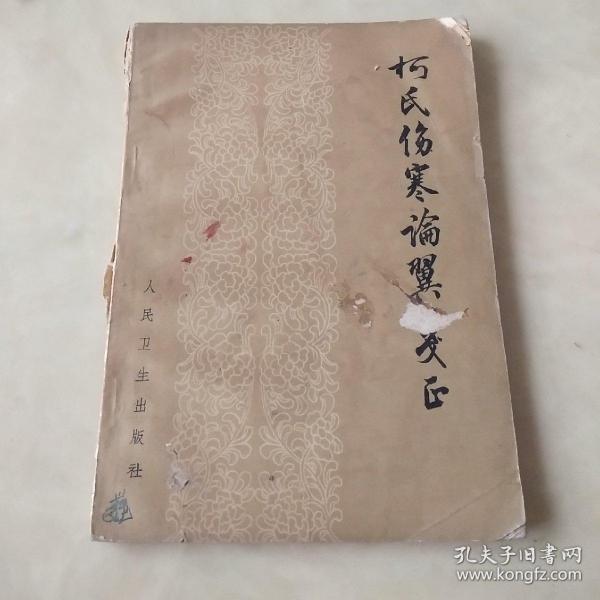 柯氏伤寒論翼笺正
人民卫生出版社
孔夫子旧書网
www.kongfz.com